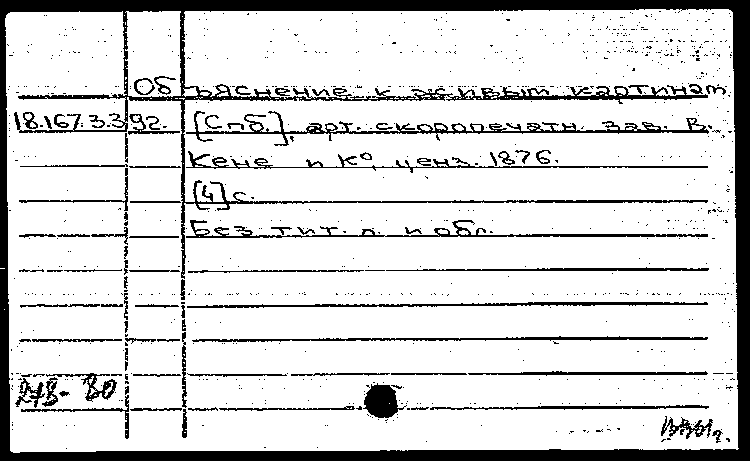 Объяснение к живым картинам
18.167.3.392. [Спб.], арт. скоропечатн. зав. В.
Кене и Ко, ценз. 1876.
[4] с.
Без тит. л. и обл.
278-80